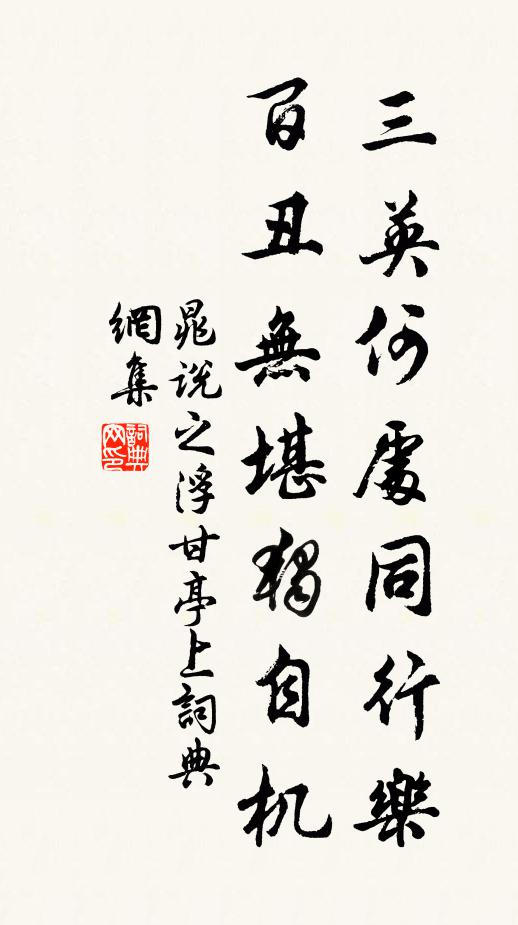 三英何處同行樂
百丑無堪獨自机
晁說之浮甘亭上詞典
網集
詞典
网印